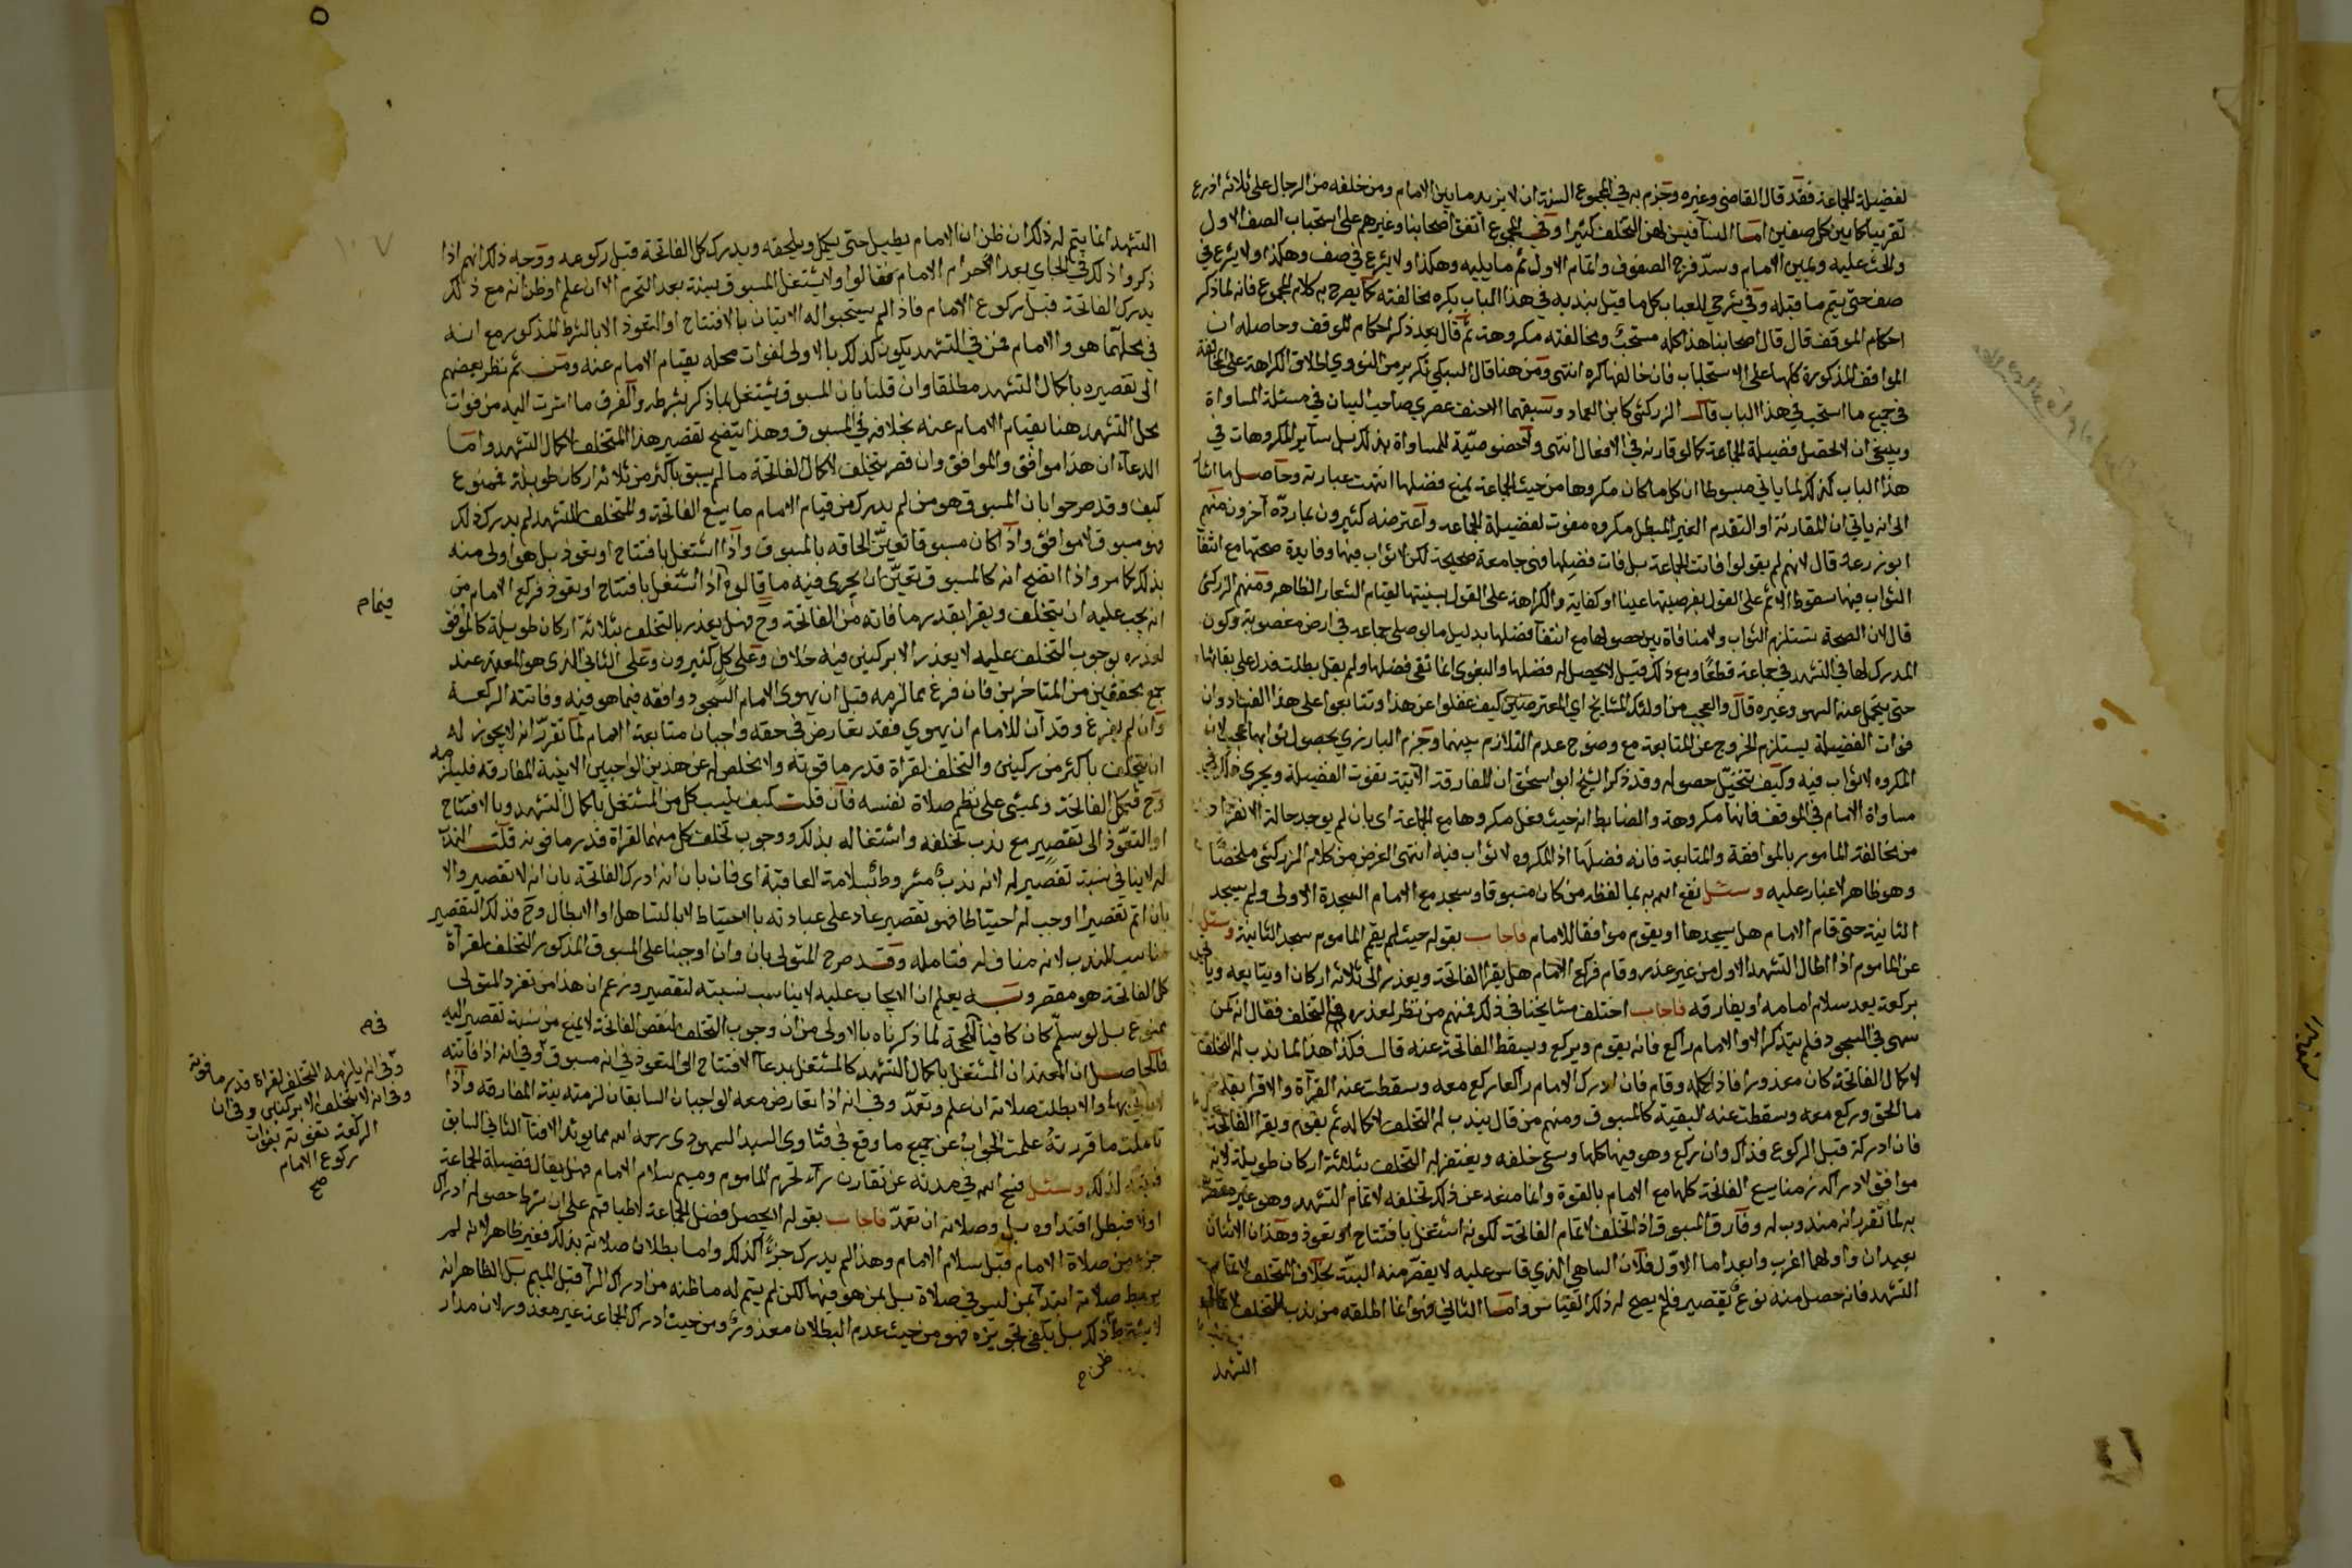 لفضيلة الجماعة فقد قال القاضي وغيره وجزم به في المجموع السنة ان لا يزيد ما بين الامام ومن خلفه من الرجال على ثلاثة اذرع
تقريبا كما بين كل صفين اما النسآ فيسن لهن التخلف كثيرا وفي المجموع اتفق اصحابنا وغيرهم على استحباب الصف الاول
والحث عليه ويمين الامام وسد فرج الصفوف واتمام الاول ثم ما يليه وهكذا ولا يشرع في
صف حتى يتم ما قبله وفي شرحي للعباب كل ما قيل بندبه في هذا الباب يكره مخالفته كما يصرح به كلام المجموع فانه لما ذكر
احكام الموقف قال قال اصحابنا هذا كله مستحب ومخالفته مكروهة ثم قال بعد ذكر احكام الموقف وحاصله ان
المواقف المذكورة كلها على الاستحباب فان خالفها كره انتهى ومن هنا قال السبكي ذكر من النووي اطلاق الكراهة على مخالفة
في جميع ما استحب في هذا الباب قال الزركشي كابن العماد وسبقهما الاحنف عصري صاحب البيان في مسئلة المساواة
وينبغي ان لا تحصل فضيلة الجماعة كما لو قارنه في الافعال انتهى ولا خصوصية للمساواة بذلك بل سآير المكروهات في
هذا الباب كذلك لما ياتي مبسوطا ان كل ما كان مكروها من حيث الجماعة يمنع فضلها انتهت عبارته وحاصل ما اشآر
الى انه ياتي ان المقارنة او التقدم الغير المبطل مكروه مفوت لفضيلة الجماعه واعترضه كثيرون بما رده آخرون منهم
ابو زرعة قال لانهم لم يقولوا فاتت الجماعة بل فات فضيلها فهي جماعة صحيحة لكن لا ثواب فيها وفايدة صحتها مع انتفآ
الثواب فيها سقوط الاثم على القول بفرضيتها عينا او كفاية والكراهة على القول بسنيتها لقيام الشعار الظاهر ومنهم الزركشي
قال لان الصحة تستلزم الثواب ولا منافاة بين حصولها مع انتفآ فضلها بدليل ما لو صلى جماعه في ارض مغصوبة وكون
المدرك لها في التشهد في جماعة قطعا ومع ذلك قيل لا يحصل له فضلها والبغوي انما نفى فضلها ولم يقل بطلت فدل على بقائها
حتى يتحمل عنه السهو وغيره قال والعجب من اولئك المشايخ اي المعترضين كيف غفلوا عن هذا وتتابعوا على هذا الفساد وان
فوات الفضيلة يستلزم الخروج عن المتابعة مع وضوح عدم التلازم بينهما وجزم البارزي بحصول ثوابها عجيب لان
المكروه لا ثواب فيه وكيف يتخيل حصوله وقد ذكر الشيخ ابو اسحق ان المفارقة الآتية تفوت الفضيلة ويجري ذلك في
مساواة الامام في الموقف فانها مكروهة والضابط انه حيث فعل مكروها مع الجماعة اي بان لم يوجد حالة الانفراد
من مخالفة المامور بالموافقة والمتابعة فانه فضلها اذ المكروه لا ثواب فيه انتهى الغرض من كلام الزركشي ملخصا
وهو ظاهر لا غبار عليه وسئل نفع الله به بما لفظه من كان مسبوقا وسجد مع الامام السجدة الاولى ولم يسجد
الثانية حتى قام الامام هل يسجدها او يقوم موافقا للامام فاجاب بقوله حيث لم يقم الماموم سجد الثانية وسئل
عن الماموم اذا اطال التشهد الاول من غير عذر وقام فركع الامام هل يقرا الفاتحة ويعذر الى ثلاثة اركان او يتابعه وياتي
بركعة بعد سلام امامه او يفارقه فاجاب اختلف مشايخنا في ذلك فمنهم من نظر لعذره في التخلف فقال انه كمن
سهى في السجود فلم يتذكر الا والامام راكع فانه يقوم ويركع وتسقط الفاتحة عنه قال فكذا هذا لما ندب له التخلف
لاكمال الفاتحة كان معذورا فاذا كمله وقام فان ادرك الامام راكعا ركع معه وسقطت عنه القرآة والا قرا بقدر
ما لحق وركع معه وسقطت عنه البقية كالمسبوق ومنهم من قال يندب له التخلف لاكماله ثم يقوم ويقرا الفاتحة
فان ادركه قبل الركوع فذاك وان ركع وهو فيها كملها وسعى خلفه ويغتفر له التخلف بثلاثة اركان طويلة لانه
موافق لادراكه زمنا يسع الفاتحة كلها مع الامام بالقوة وانما منعه عن ذلك تخلفه لاتمام التشهد وهو غير مقصر
به لما تقرر انه مندوب له وفارق المسبوق اذا تخلف لاتمام الفاتحة لكونه اشتغل بافتتاح او تعوذ وهذان الاثنان
بعيدان واولهما اغرب وابعد اما الاول فلان الساهي الذي قاس عليه لا يقصر منه البتة بخلاف المتخلف لاتمام
التشهد فانه حصل منه نوع تقصير فلم يصح له ذلك القياس واما الثاني فهو انما اطلقه من ندب التخلف لاكمال
التشهد
٥
١٠٧
التشهد انما يتم له ذلك ان ظن ان الامام يطيل حتى يكمل ويلحقه ويدرك كل الفاتحة قبل ركوعه ووجه ذلك انهم اذا
ذكروا ذلك في الجاي بعد احرام الامام فقالوا ولا يشتغل المسبوق بسنة بعد التحرم الا ان علم او ظن انه مع ذلك
يدرك الفاتحة قبل ركوع الامام فاذا لم يستحبوا له الاتيان بالافتتاح او التعوذ الا بالشرط المذكور مع انه
في محلهما هو والامام فمن في التشهد يكون كذلك بالاولى لفوات محله بقيام الامام عنه ومن ثم نظر بعضهم
الى تقصيره باكمال التشهد مطلقا وان قلنا بان المسبوق يشتغل بما ذكر بشرطه والفرق ما اشرت اليه من فوات
محل التشهد هنا بقيام الامام عنه بخلافه في المسبوق وهذا يتضح تقصير هذا المتخلف لاكمال التشهد واما
الدعآء ان هذا موافق والموافق وان قصر يتخلف لاكمال الفاتحة ما لم يسبق باكثر من ثلاثة اركان طويلة فممنوع
كيف وقد صرحوا بان المسبوق هو من لم يدرك من قيام الامام ما يسع الفاتحة والمتخلف للتشهد لم يدرك ذلك
فهو مسبوق لا موافق واذا كان مسبوقا تعين الحاقه بالمسبوق واذا اشتغل بافتتاح او تعوذ بل هو اولى منه
بذلك كما مر واذا اتضح انه كالمسبوق تعين ان يجري فيه ما قالوه اذا اشتغل بافتتاح او تعوذ فركع الامام من
انه يجب عليه ان يتخلف ويقرا بقدر ما فاته من الفاتحة وح فهل يعذر بالتخلف بثلاثة اركان طويلة كالموافق
لعذره بوجوب التخلف عليه لا يعذر الا بركنين فيه خلاف وعلى كل كثيرون وعلى الثاني الذي هو المعتمد عند
جمع محققين من المتاخرين فان فرغ مما لزمه قبل ان يهوى الامام السجود وافقه فيما هو فيه وفاتته الركعة
وان لم يفرغ وقد آن للامام ان يهوي فقد تعارض في حقه واجبان متابعة الامام لما تقرر انه لا يجوز له
ان يتخلف باكثر من ركنين والتخلف لقراة قدر ما فوته ولا مخلص له عن هذين الواجبين الا بنية المفارقه فليلزمه
وح فيكمل الفاتحة ويمشي على نظم صلاة نفسه فان قلت كيف ينسب كل من المشتغل باكمال التشهد وبالافتتاح
او التعوذ الى تقصير مع ندب تخلفه واشتغاله بذلك ووجوب تخلف كل منهما لقراة قدر ما فوته قلت الندب
له لا ينافي نسبة تقصير له لانه ندب مشروط بسلامة العاقبة اي فان بان انه ادرك الفاتحة بان انه لا تقصير والا
بان اتم تقصيرا اوجب له احتياطا فهو تقصير عاد على عبادته بالاحتياط لا بالتساهل او الابطال وح فذلك التقصير
مناسب للندب لانه مناف له فتامله وقد صرح المتولي بان وان اوجبنا على المسبوق المذكور التخلف لقرآة
كل الفاتحة هو مقصر وبه يعلم ان الايجاب عليه لا يناسب نسبته لتقصير وزعم ان هذا من تفرد المتولي
ممنوع بل لو سلم كان كافيا للحجة لما ذكرناه بالاولى من ان وجوب التخلف لنقص الفاتحة لا يمنع من نسبة تقصير اليه
فالحاصل ان المعتمد ان المشتغل باكمال التشهد كالمشتغل بدعآ الافتتاح الى التعوذ في انه مسبوق وفي انه اذا فاتته
لا ياتي بها والا بطلت صلاته ان علم وتعمد وفي انه اذا تعارض معه الواجبان السابقان لزمته نية المفارقه واذا
تاملت ما قررته علمت الجواب عن جميع ما وقع في فتاوى السيد السمهودي رحمه الله مما يويد الافتآ الثاني السابق
فتنبه لذلك وسئل فسح الله في مدته عن تقارن رآء تحرم الماموم وميم سلام الامام فهل يقال فضيلة الجماعة
اولا فيبطل اقتداوه بل وصلاته ان تعمد فاجاب بقوله لا يحصل فضل الجماعة لاطباقهم على ان شرط حصوله ادراك
جزء من صلاة الامام قبل سلام الامام وهذا لم يدرك جزءا كذلك واما بطلان صلاته بذلك فغير ظاهر لانه لم
يربط صلاته ابتدآ بمن ليس في صلاة بل بمن هو فيها لكن لم يتم له ما ظنه من ادراك الرآ قبل الميم بل الظاهر انه
لا يشترط ذلك بل يكفي تجويزه فهو من حيث عدم البطلان معذور ومن حيث ادراك الجماعة غير معذور لان مدار
ظن م
وفي انه يلزمه التخلف لقراة قدر ما فوته
وفي انه لا يتخلف الا بركنين وفي ان
الركعة تفوته بفوات
ركوع الامام
صح